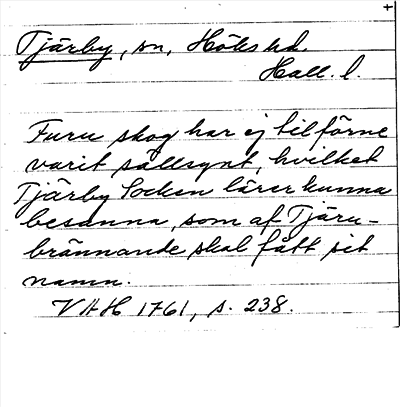 Tjärby, sn, Höks hd.
Hall. l.
Furu skog har ej tilförne
varit sällsynt, hvilket
Tjärby Socken lärer kunna
besanna, som af Tjäru-
brännande skal fått sit
namn.
VAH 1761, s. 238.